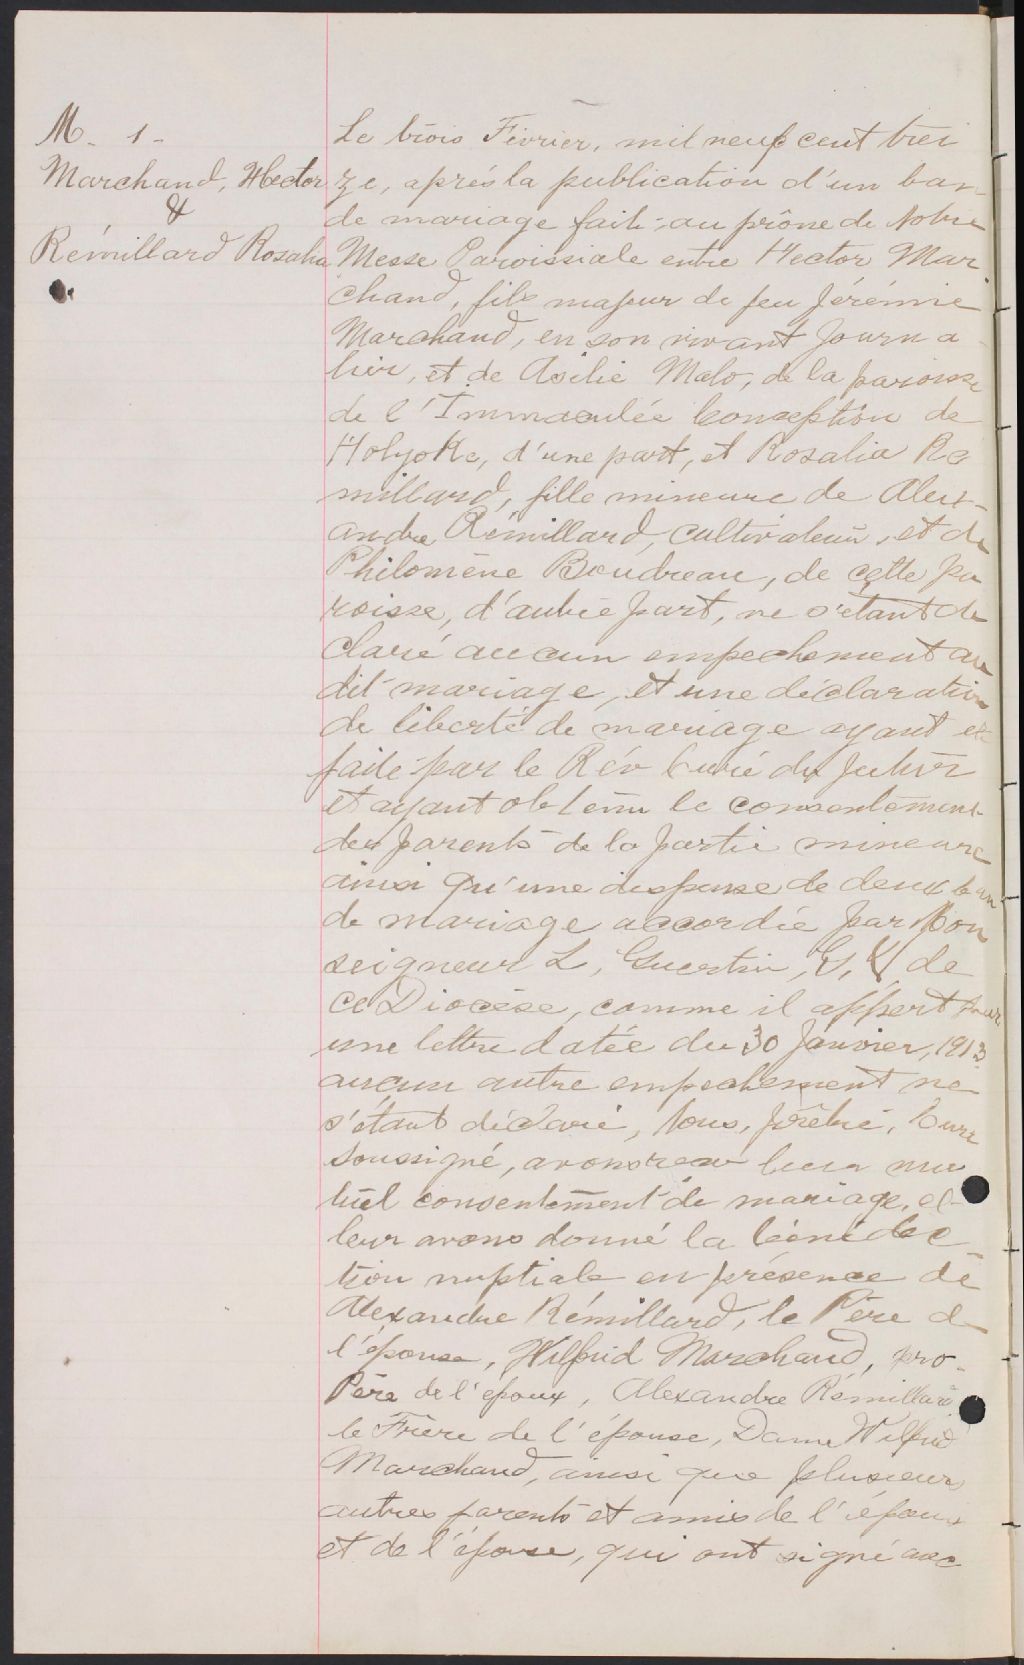 M. 1-
Marchand, Hector
&
Rémillard Rosalia
Le trois Février, mil neuf cent trei
ze, après la publication d'un ban
de mariage faite au prône de Notre
Messe Paroissiale entre Hector Mar
chand, fils majeur de feu Jérémie
Marchand, en son vivant journa
lier, et de Asilie Malo, de la paroisse
de l'Immaculée Conception de
Holyoke, d'une part, et Rosalia Re
millard, fille mineure de Alex-
andre Rémillard, cultivateur, et de
Philomène Boudreau, de cette pa
roisse, d'autre part, ne s'étant dé
claré aucun empechement au
dit mariage, et une déclaration
de liberté de mariage ayant été
faite par le Rév Curé du futur
et ayant obtenu le consentement
des parents de la partie mineure
ainsi qu'une dispense de deux ban
de mariage accordée par Mon
seigneur L, Guertin, G, V, de
ce Diocèse, comme il appert par
une lettre datée du 30 Janvier, 1913
aucun autre empechement ne
s'étant déclaré, Nous, prêtre, Curé
Soussigné, avons reçu leur mu
tuel consentement de mariage, et
leur avons donné la bénédic
tion nuptiale en présence de
Alexandre Rémillard, le Père de
l'épouse, Wilfrid Marchand, pro-
Père de l'époux, Alexandre Rémillard
le Frère de l'épouse, Dame Wilfrid
Marchand, ainsi que plusieurs
autres parents et amis de l'époux
et de l'épouse, qui ont signé avec